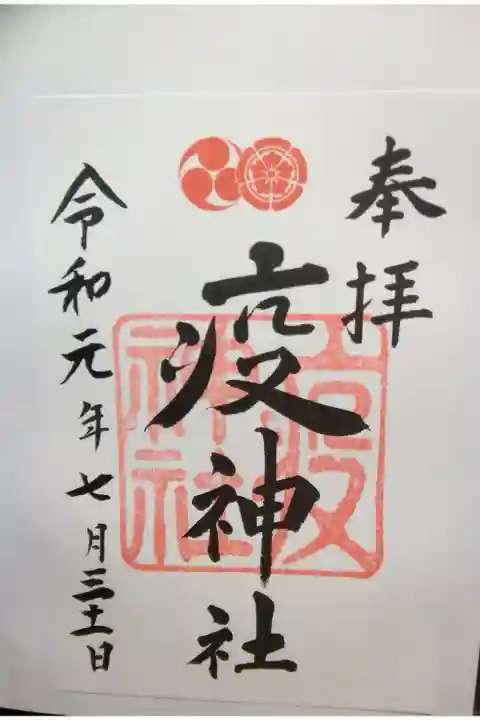 奉拝
疫神社
疫神社
令和元年七月三十一日